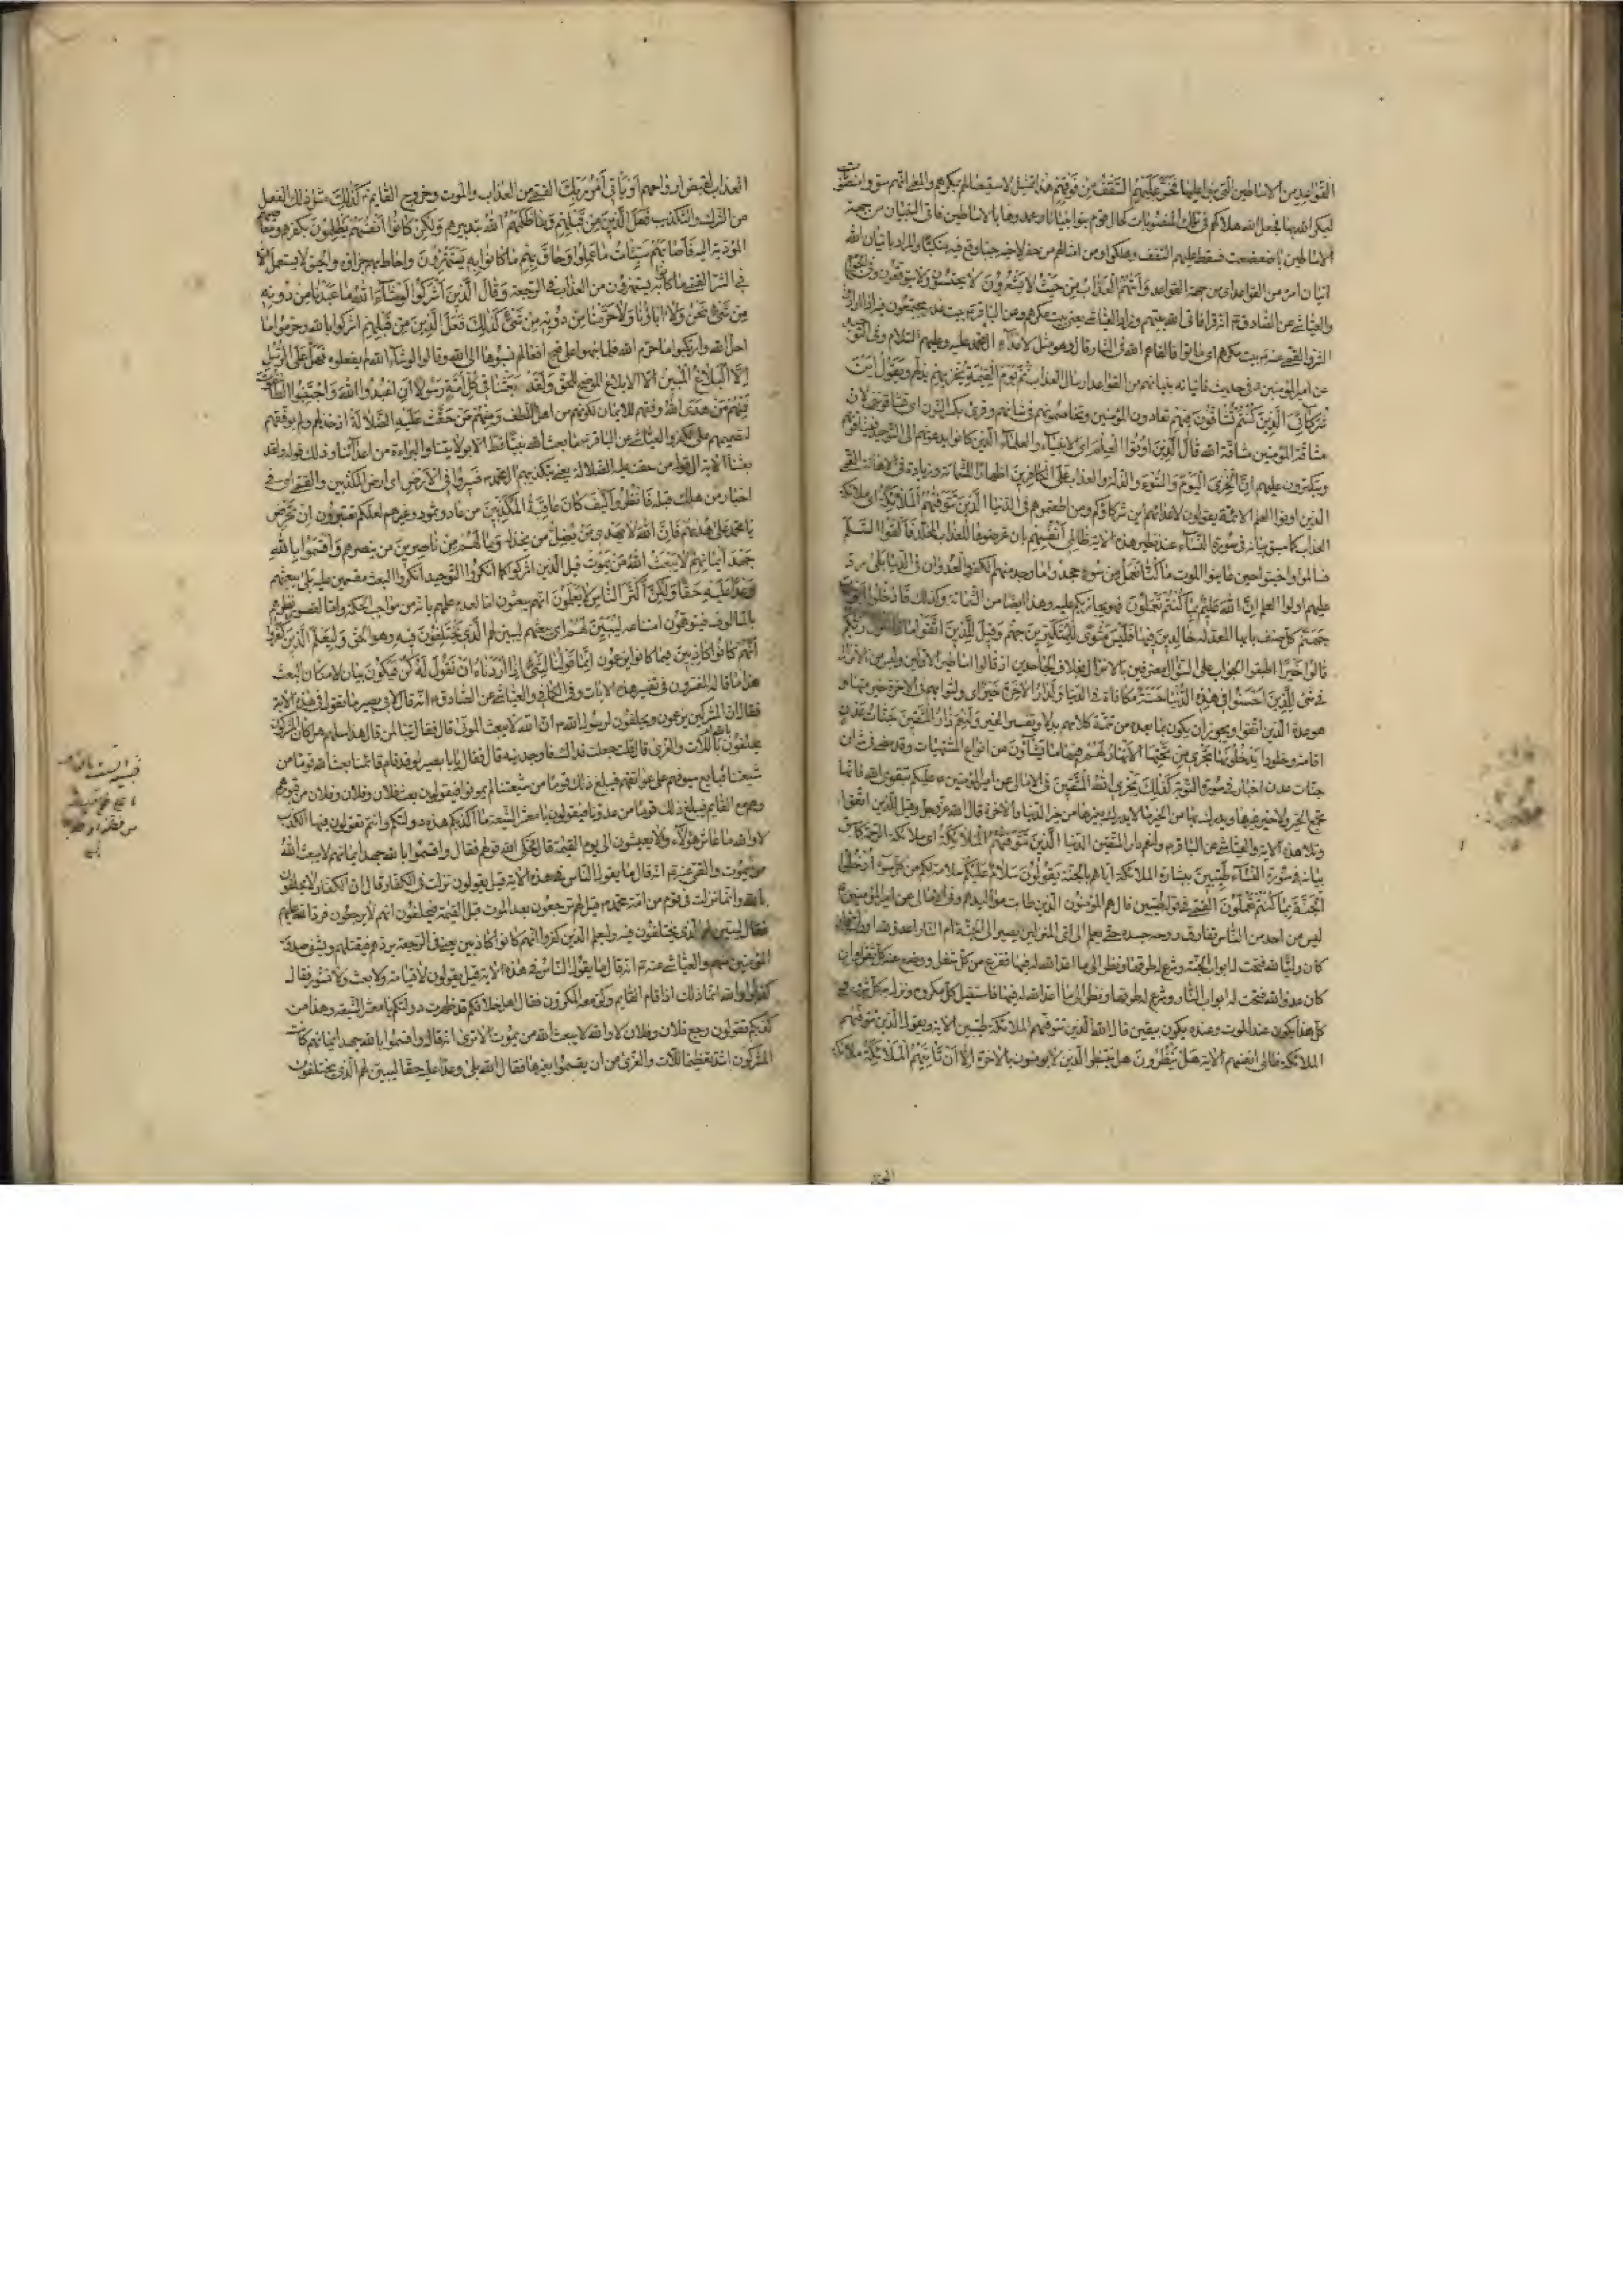 القواعد من الاساطين التي بنوا عليها فخر عليهم السقف من فوقهم هذا تمثيل لاستيصالهم بمكرهم والمعنى انهم سووا منصوبات
ليمكروا الله بها فجعل الله هلاكهم في تلك المنصوبات كحال قوم بنوا بنيانا وعمدوها بالاساطين فاتى البنيان من جهة
الاساطين بان ضعضعت فسقط عليهم السقف وهلكوا ومن امثالهم من حفر لاخيه جبا وقع فيه منكبا والمراد باتيان الله
اتيان امره من القواعد اي من جهة القواعد واتيهم العذاب من حيث لا يشعرون لا يحتسبون ولا يتوقعون
والعياشي عن الصادق انه قرا فاتى الله بيتهم وزاد العياشي يعني بيت مكرهم وعن الباقر بيت غدر يجتمعون فيه اذا ارادوا
الشر والقمي عنه بيت مكرهم اي ماتوا فالقاهم الله في النار قال وهو مثل لاعداء ال محمد عليه وعليهم السلام وفي التوحيد
عن امير المؤمنين في حديث فاتيانه بنيانهم من القواعد ارسال العذاب ثم يوم القيمة يخزيهم يذلهم ويقول اين
شركائي الذين كنتم تشاقون فيهم تعادون المؤمنين وتخاصمونهم في شانهم وقرئ بكسر النون اي تشاقونني لان
مشاقة المؤمنين مشاقة الله قال الذين اوتوا العلم اي الانبياء والعلماء الذين كانوا يدعونهم الى التوحيد فيشاقونهم
ويتكبرون عليهم ان الخزي اليوم والسوء والذلة والعذاب على الكافرين اظهارا للشماتة وزيادة في الاهانة القمي
الذين اوتوا العلم الائمة يقولون لاعدائهم اين شركاؤكم ومن اطعتموهم في الدنيا الذين تتوفيهم الملائكة اي ملائكة
العذاب كما سبق بيانه في سورة النساء عند نظير هذه الاية ظالمي انفسهم بان عرضوها للعذاب المخلد فالقوا السلم
فسالموا واخبتوا حين عاينوا الموت ما كنا نعمل من سوء جحدوا ما وجد منهم من الكفر والعدوان في الدنيا بلى رد
عليهم اولوا العلم ان الله عليم بما كنتم تعملون فهو يجازيكم عليه وهذا ايضا من الشماتة وكذلك فادخلوا ابواب
جهنم كل صنف بابها المعد له خالدين فيها فلبئس مثوى المتكبرين جهنم وقيل للذين اتقوا ماذا انزل ربكم
قالوا خيرا اطبقوا الجواب على السؤال معترفين بالانزال بخلاف الجاحدين اذ قالوا اساطير الاولين وليس من الانزال
في شئ للذين احسنوا في هذه الدنيا حسنة مكافاة في الدنيا ولدار الاخرة خير اي ولثوابهم في الاخرة خير منها وهو
عدة للذين اتقوا ويجوز ان يكون بما بعده من تتمة كلامهم بدلا وتفسيرا لخيرا ولنعم دار المتقين جنات عدن
اقامة وخلود يدخلونها تجري من تحتها الانهار لهم فيها ما يشاؤن من انواع المشتهيات وقد مضى في شان
جنات عدن اخبار في سورة التوبة كذلك يجزي الله المتقين في الامالي عن امير المؤمنين عليكم بتقوى الله فانها
تجمع الخير ولا خير غيرها ويدرك بها من الخير ما لا يدرك بغيرها من خير الدنيا والاخرة قال الله عز وجل وقيل للذين اتقوا
وتلا هذه الاية والعياشي عن الباقر ولنعم دار المتقين الدنيا الذين تتوفيهم الملائكة اي ملائكة الرحمة كما سبق
بيانه في سورة النساء طيبين ببشارة الملائكة اياهم بالجنة يقولون سلام عليكم سلامة لكم من كل سوء ادخلوا
الجنة بما كنتم تعملون القمي في قوله طيبين قال هم المؤمنون الذين طابت مواليدهم وفي الامالي عن امير المؤمنين
ليس من احد من الناس تفارق روحه جسده حتى يعلم الى اي المنزلين يصير الى الجنة ام النار اعدو لله او ولي فان
كان وليا لله فتحت له ابواب الجنة وشرع له طرقها ونظر الى ما اعد الله له فيها ففرغ من كل شغل ووضع عنه كل ثقل وان
كان عدوا لله فتحت له ابواب النار وشرع له طرقها ونظر الى ما اعد الله له فيها فاستقبل كل مكروه ونزل كل شرور
كل هذا يكون عند الموت وعنده يكون بيقين قال الله الذين تتوفيهم الملائكة طيبين الاية ويقول الذين تتوفيهم
الملائكة ظالمي انفسهم الاية هل ينظرون هل ينتظر الذين لا يؤمنون بالاخرة الا ان تاتيهم الملائكة ملائكة
العذاب لقبض ارواحهم او ياتي امر ربك القمي من العذاب والموت وخروج القايم كذلك مثل ذلك الفعل
من الشرك والتكذيب فعل الذين من قبلهم وما ظلمهم الله بتدميرهم ولكن كانوا انفسهم يظلمون بكفرهم ومعاصيهم
المؤدية اليه فاصابهم سيئات ما عملوا وحاق بهم ما كانوا به يستهزؤن واحاط بهم جزاؤه والحيق لا يستعمل الا
في الشر القمي ما كانوا به يستهزؤن من العذاب في الرجعة وقال الذين اشركوا لو شاء الله ما عبدنا من دونه
من شئ نحن ولا اباؤنا ولا حرمنا من دونه من شئ كذلك فعل الذين من قبلهم اشركوا بالله وحرموا ما
احل الله وارتكبوا ما حرم الله فلما نبهوا على قبح افعالهم نسبوها الى الله وقالوا لو شاء الله لم يفعلوه فهل على الرسل
الا البلاغ المبين الا الابلاغ الموضح للحق ولقد بعثنا في كل امة رسولا ان اعبدوا الله واجتنبوا الطاغوت
فمنهم من هدى الله وفقهم للايمان لكونهم من اهل اللطف ومنهم من حقت عليه الضلالة اذ خذلهم ولم يوفقهم
لتصميمهم على الكفر والعياشي عن الباقر ما بعث الله نبيا قط الا بولايتنا والبراءة من اعدائنا وذلك قوله ولقد
بعثنا الاية الى قوله من حقت عليه الضلالة يعني بتكذيبهم ال محمد فسيروا في الارض اي ارض المكذبين والقمي اي في
اخبار من هلك قبله فانظروا كيف كان عاقبة المكذبين من عاد وثمود وغيرهم لعلكم تعتبرون ان تحرص
يا محمد على هديهم فان الله لا يهدي من يضل من يخذله وما لهم من ناصرين من ينصرهم واقسموا بالله
جهد ايمانهم لا يبعث الله من يموت قيل الذين اشركوا كما انكروا التوحيد انكروا البعث مقسمين عليه بلى يبعثهم
وعدا عليه حقا ولكن اكثر الناس لا يعلمون انهم يبعثون اما لعدم علمهم بانه من مواجب الحكمة واما لقصور نظرهم
بالمالوف فيتوهمون امتناعه ليبين لهم اي يبعثهم ليبين لهم الذي يختلفون فيه وهو الحق وليعلم الذين كفروا
انهم كانوا كاذبين فيما كانوا يزعمون انما قولنا لشئ اذا اردناه ان نقول له كن فيكون بيان لامكان البعث
هذا ما قاله المفسرون في تفسير هذه الايات وفي الكافي والعياشي عن الصادق انه قال لابي بصير ما تقول في هذه الاية
فقال ان المشركين يزعمون ويحلفون لرسول الله ان الله لا يبعث الموتى قال فقال تبا لمن قال هذا سلهم هل كان المشركون
يحلفون بالله ام باللات والعزى قال قلت جعلت فداك فاوجدنيه قال فقال يا ابا بصير لو قد قام قائمنا بعث الله قوما من
شيعتنا قبايع سيوفهم على عواتقهم فيبلغ ذلك قوما من شيعتنا لم يموتوا فيقولون بعث فلان وفلان وفلان من قبورهم
وهم مع القايم فيبلغ ذلك قوما من عدونا فيقولون يا معشر الشيعة ما اكذبكم هذه دولتكم وانتم تقولون فيها الكذب
لا والله ما عاش هؤلاء ولا يعيشون الى يوم القيمة قال فحكى الله قولهم فقال واقسموا بالله جهد ايمانهم لا يبعث الله
من يموت والقمي عنه انه قال ما يقول الناس في هذه الاية قيل يقولون نزلت في الكفار قال ان الكفار لا يحلفون
بالله وانما نزلت في قوم من امة محمد قيل لهم ترجعون بعد الموت قبل القيمة فيحلفون انهم لا يرجعون فرد الله عليهم
فقال ليبين لهم الذي يختلفون فيه وليعلم الذين كفروا انهم كانوا كاذبين يعني في الرجعة يردهم فيقتلهم ويشفي صدور
المؤمنين منهم والعياشي عنه انه قال ما يقول الناس في هذه الاية قيل يقولون لا قيامة ولا بعث ولا نشور فقال
كذبوا والله انما ذلك اذا قام القايم وكر معه المكرون فقال اهل خلافكم قد ظهرت دولتكم يا معشر الشيعة وهذا من
كذبكم تقولون رجع فلان وفلان لا والله لا يبعث الله من يموت الا ترى انه قال واقسموا بالله جهد ايمانهم كانت
المشركون اشد تعظيما للات والعزى من ان يقسموا بغيرها فقال الله بلى وعدا عليه حقا ليبين لهم الذي يختلفون